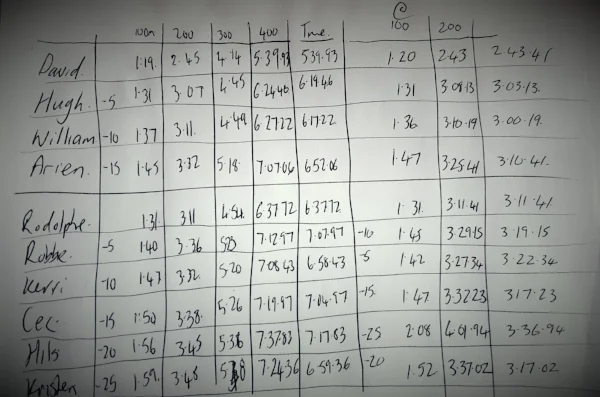 100m 200 300 400 Time. @ 100 200
David. 1:19. 2:45 4:14 5:39.93 539.93 1.20 2.43 2.43.41
Hugh. -5 1:31 3.07 4.45 6.24.46 6.19.46 1.31 3.08.13 3.03.13
William -10 1:37 3.11. 4.49 6.27.22 617.22 1.36 3.10.19 3.00.19.
Arien. -15 1:45 3.32 5.18. 7.07.06 652.06 1.47 3.25.41 3.10.41.
Rodolphe. 1:31 311 4.54. 6.37.72 637.72 1.31. 3.11.41 3.11.41
Robbe. -5 1:40 3.36 525 7.12.97 7.07.97 -10 1.45 3.29.15 3.19.15
Kerri -10 1:47 3.32. 5.20 7.08.43 6.58.43 -5 1.42 3.27.34 3.22.34
Cec. -15 1:50 3.38. 5.26 7.19.97 7.04.97 -15. 1.47 3.32.23 317.23
Hils -20 1:56 3.45 5.36 7.37.83 7.17.83 -25 2.08 4.01.94 3.36.94
Kristen -25 1:59. 3.48 7.24.36 6.59.36 -20 1.52 3.37.02 3.17.02